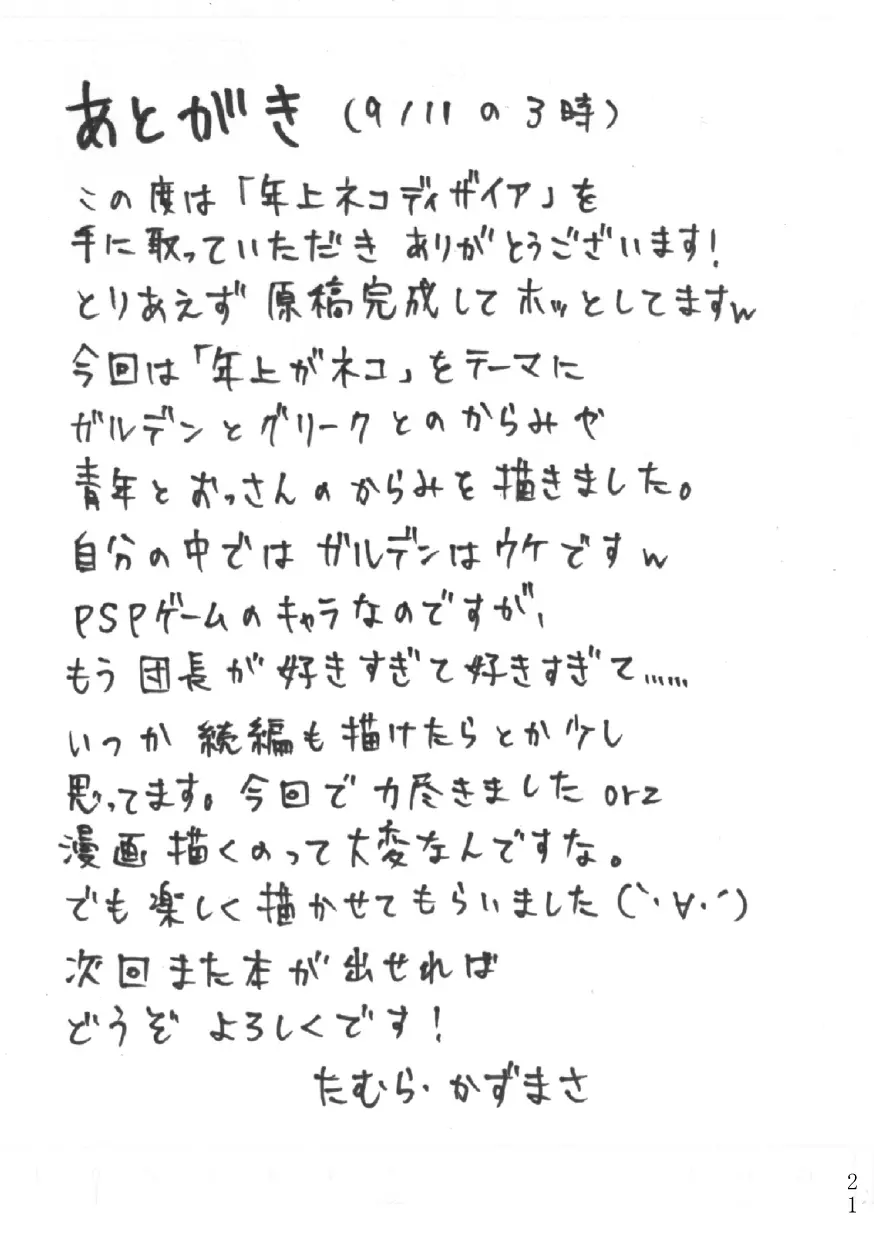 あとがき (9/11の3時)
この度は「年上ネコディザイア」を
手に取っていただき ありがとうございます!
とりあえず 原稿完成してホッとしてますw
今回は「年上がネコ」をテーマに
ガルデンとグリークとのからみや
青年とおっさんのからみを描きました。
自分の中では ガルデンはウケですw
PSPゲームのキャラなのですが、
もう 団長が好きすぎて好きすぎて……
いつか 続編も描けたらとか少し
思ってます。今回で力尽きました orz
漫画描くのって大変なんですな。
でも楽しく描かせてもらいました(`・∀・´)
次回また本が出せれば
どうぞ よろしくです!
たむら・かずまさ
21